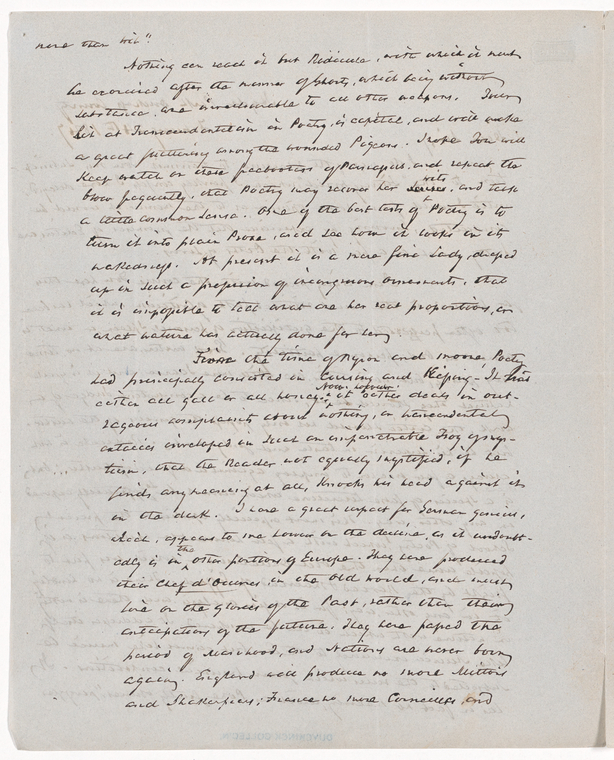 more than wit".
Nothing can reach it but Ridicule, with which it must
be exorcised after the manner of Ghosts, which being without
substance, are invulnerable to all other weapons. Your
hit at Transcendentalism in Poetry, is capital, and will make
a great fluttering among the wounded Pigeons. I hope You will
keep watch on these freebooters of Parnassus, and repeat the
blow frequently, that Poetry may recover her senses wits, and talk
a little common sense. One of the best tests of Poetry is to
turn it into plain Prose, and see how it looks in its
nakedness. At present it is a mere fine Lady, draped
up in such a profusion of incongruous ornaments, that
it is impossible to tell what are her real proportions, or
what nature has actually done for her.
From the time of Byron and Moore, Poetry
had principally consisted in Cursing and Kissing - It was
either all gall or all honey. Now, however, it either deals in out-
rageous complaints about nothing, or transcendental
enveloped in such an impenetrable Fog of mys-
ticism, that the Reader not equally mystified, if he
finds any meaning at all, knocks his head against it
in the dark. I have a great respect for German genius,
which, appears to me however on the decline, as it undoubt-
edly is in the other portions of Europe. They have produced
their Chef d'Oeuvres, in the old world, and must
live on the glories of the Past, rather than their
anticipations of the future. They have passed the
period of Manhood, and Nations are never born
again. England will produce no more Miltons
and Shakespears; France no more Corneilles, and